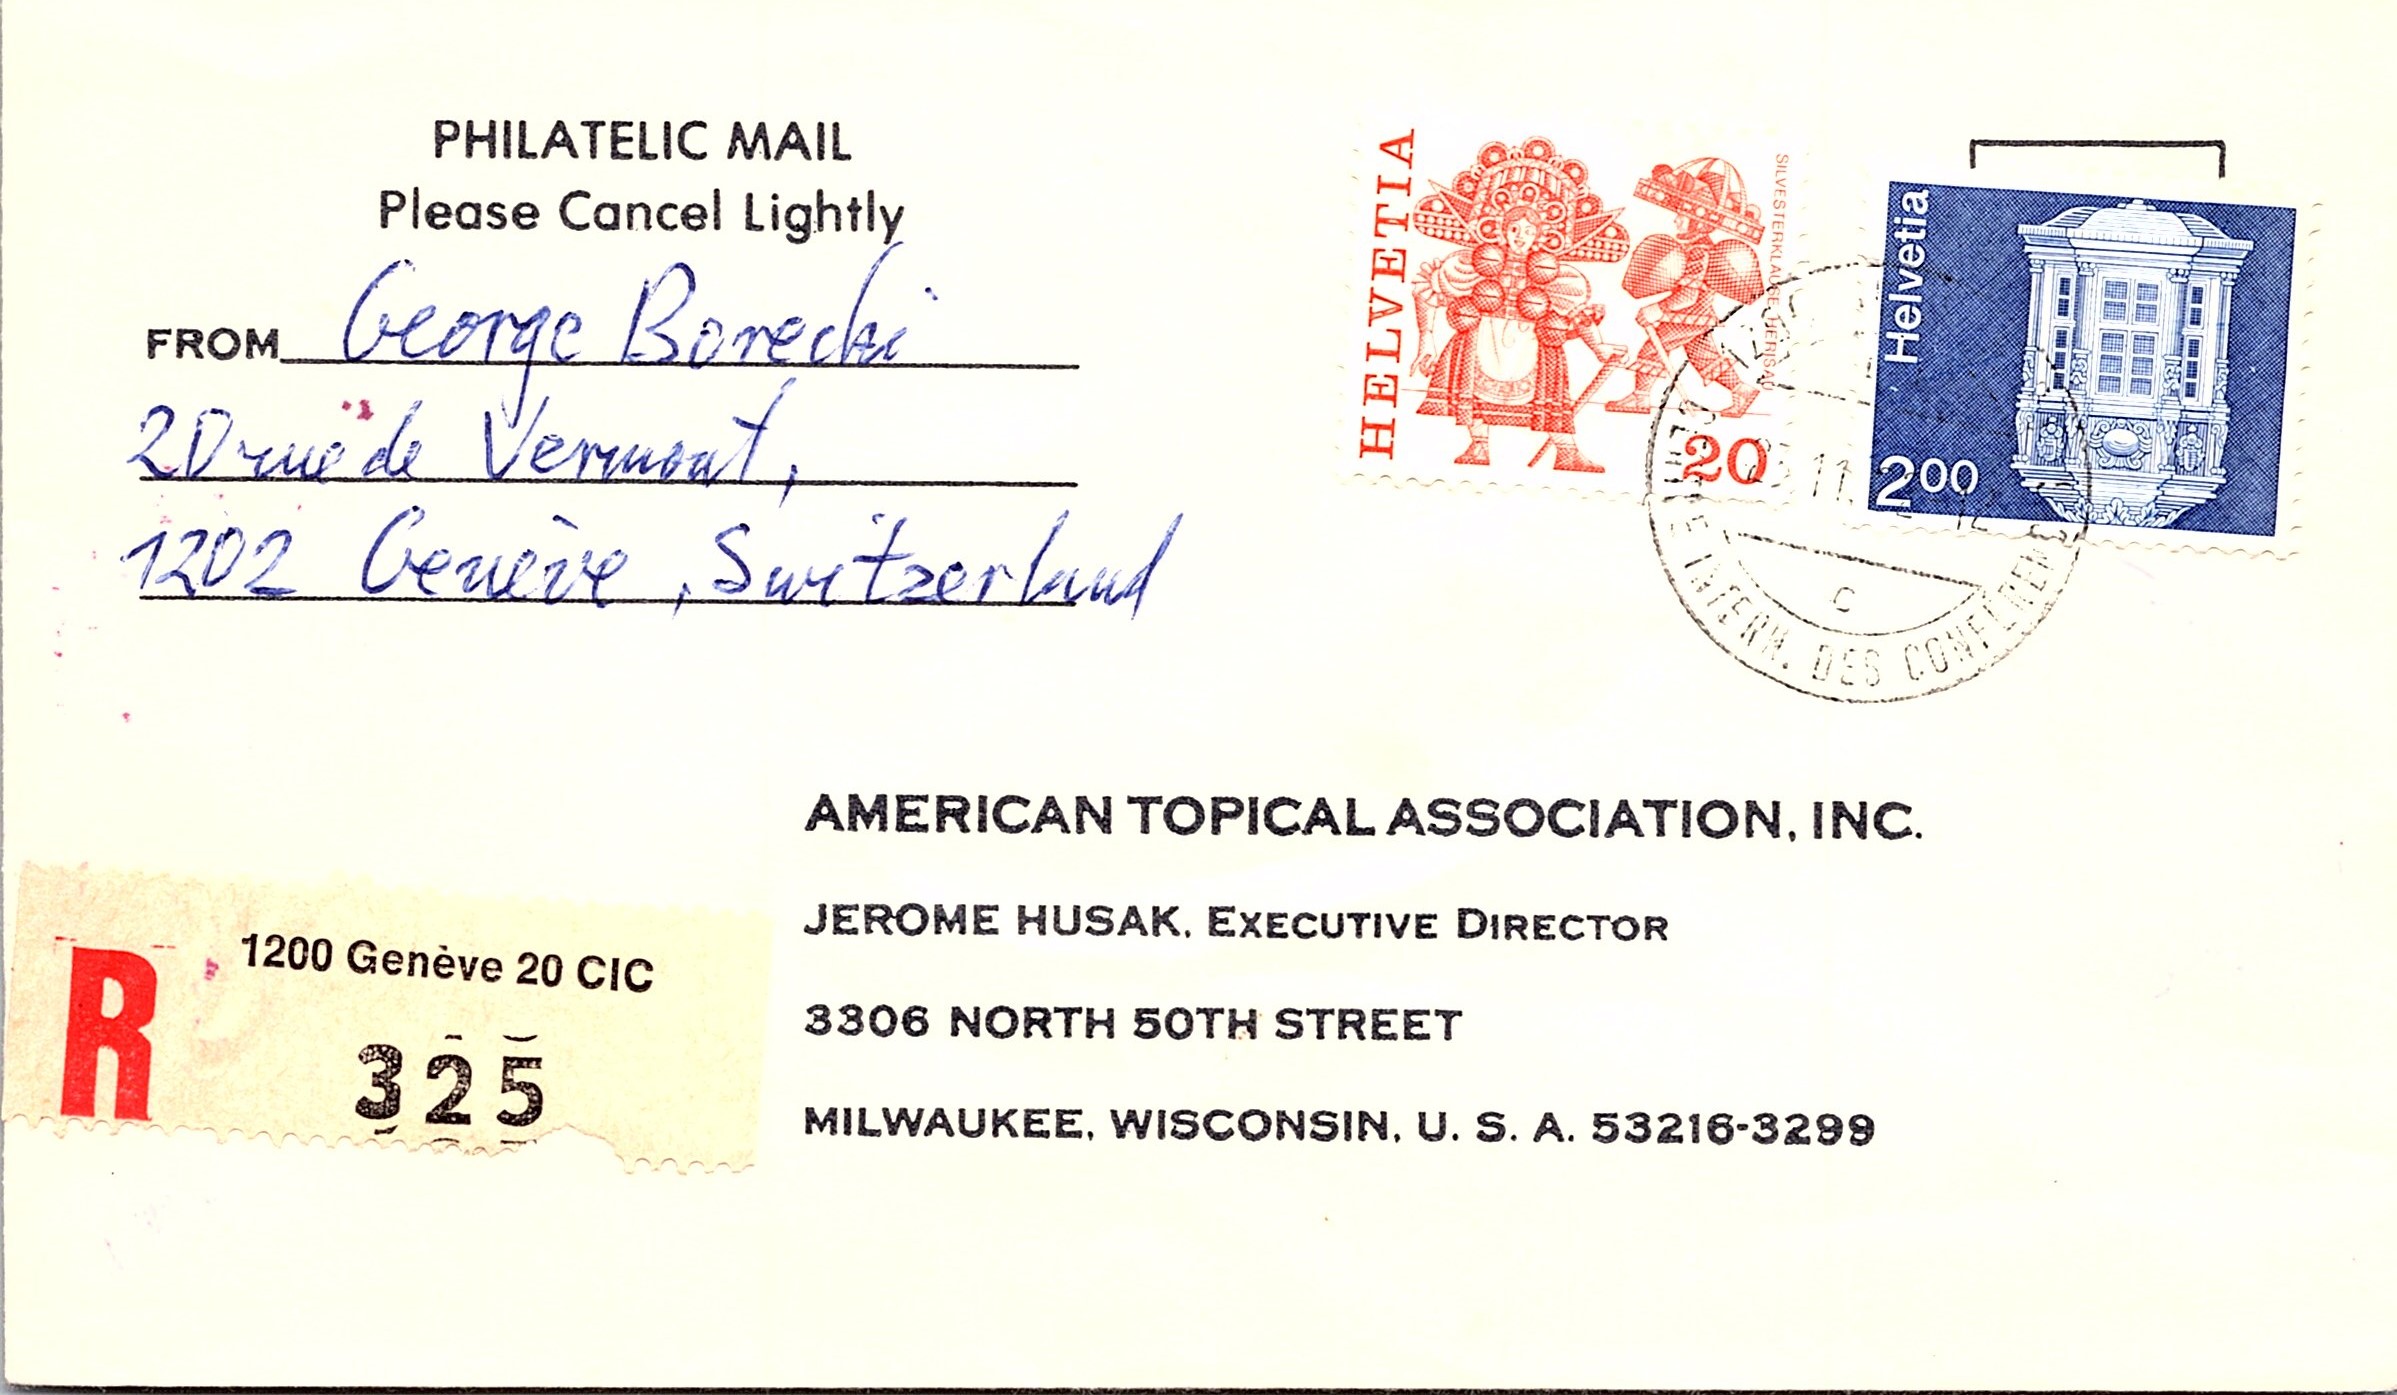 PHILATELIC MAIL
Please Cancel Lightly
FROM George Borecki
20 rue de Vermont,
1202 Genève, Switzerland
HELVETIA
SILVESTERKLÄUSE HERISAU
20
Helvetia
200
1200
11.
12
C
INTERN. DES CONFÉRENCES
AMERICAN TOPICAL ASSOCIATION, INC.
JEROME HUSAK, EXECUTIVE DIRECTOR
3306 NORTH 50TH STREET
MILWAUKEE, WISCONSIN, U. S. A. 53216-3299
R
1200 Genève 20 CIC
325